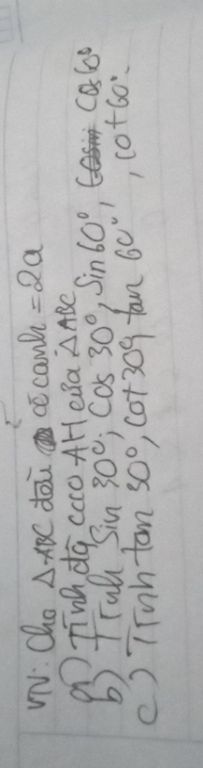 VN: Cho △ABC đều có cạnh = 2a
a) Tính độ cao AH của △ABC
b) Tính Sin 30°, Cos 30°, Sin 60°, Cos 60°
c) Tính tan 30°, Cot 30°, tan 60°, cot 60°.